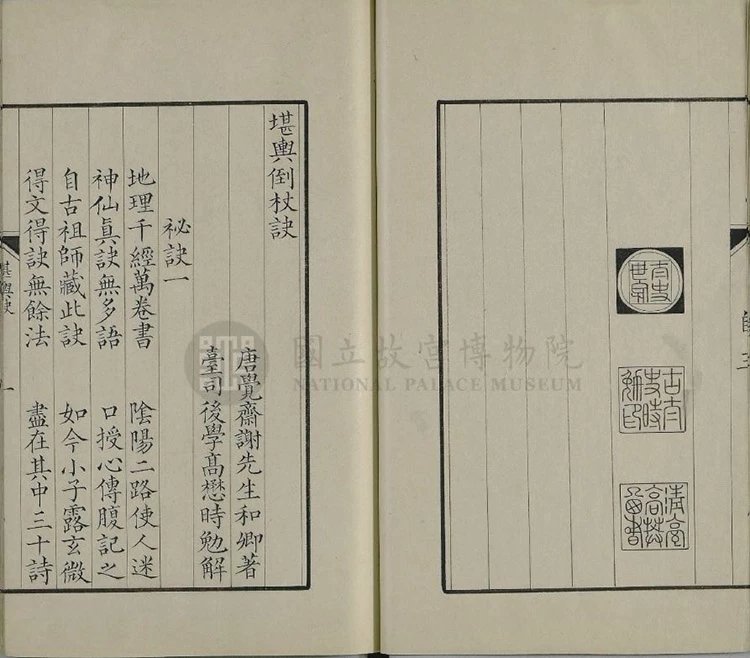 堪輿倒杖訣
唐覺齋謝先生和卿著
臺司後學高懋時勉解
祕訣一
地理千經萬卷書 陰陽二路使人迷
神仙眞訣無多語 口授心傳腹記之
自古祖師藏此訣 如今小子露玄微
得文得訣無餘法 盡在其中三十詩
一
國立故宮博物院
NATIONAL PALACE MUSEUM